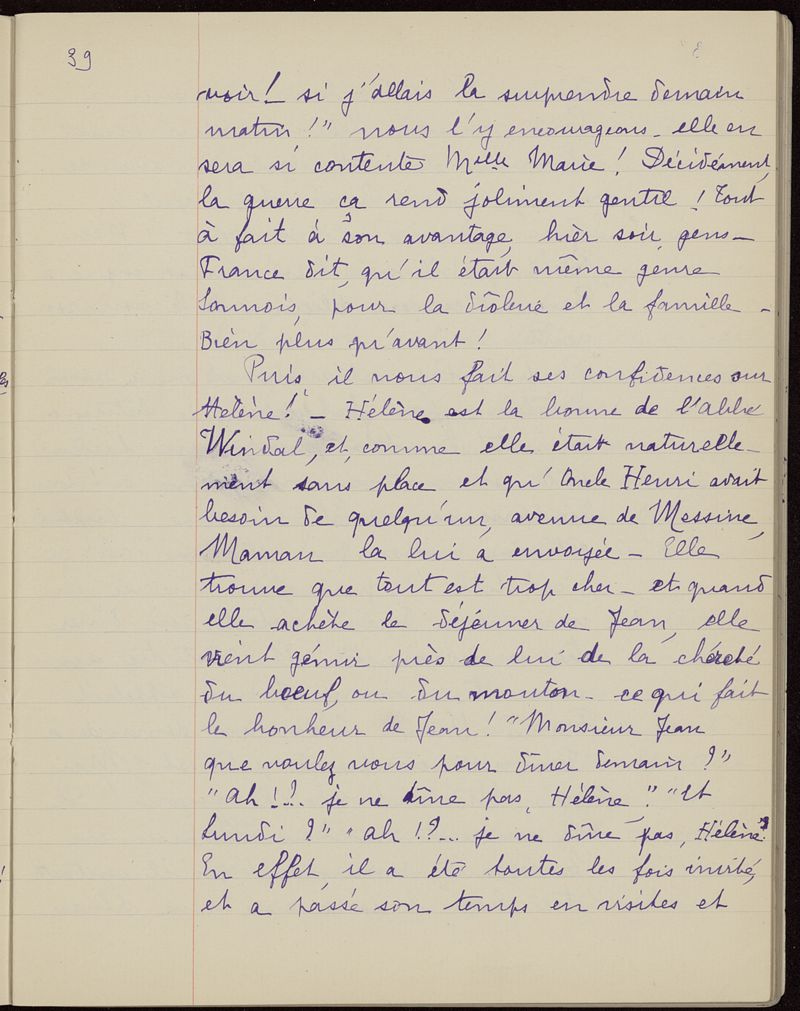 39
voir! si j'allais la surprendre demain
matin!" nous l'y encourageons - elle en
sera si contente Melle Marie! Décidément,
la guerre ça rend joliment gentil! Tout
à fait à son avantage, hier soir, gens -
France dit, qu'il était même genre
Lonnois, pour la drôlerie et la famille -
Bien plus qu'avant!
Puis, il nous fait ses confidences sur
Hélène! - Hélène est la bonne de l'abbé
Windal, et, comme elle était naturelle-
ment sans place et qu'Oncle Henri avait
besoin de quelqu'un, avenue de Messine,
Maman la lui a envoyée - Elle
trouve que tout est trop cher - et quand
elle achète le déjeuner de Jean, elle
vient gémir près de lui de la cherté
du boeuf, ou du mouton - ce qui fait
le bonheur de Jean! "Monsieur Jean
que voulez vous pour dîner demain?"
"Ah!?.. je ne dîne pas, Hélène". "Et
Lundi?" "Ah!?... je ne dîne pas, Hélène".
En effet, il a été toutes les fois invité,
et a passé son temps en visites et